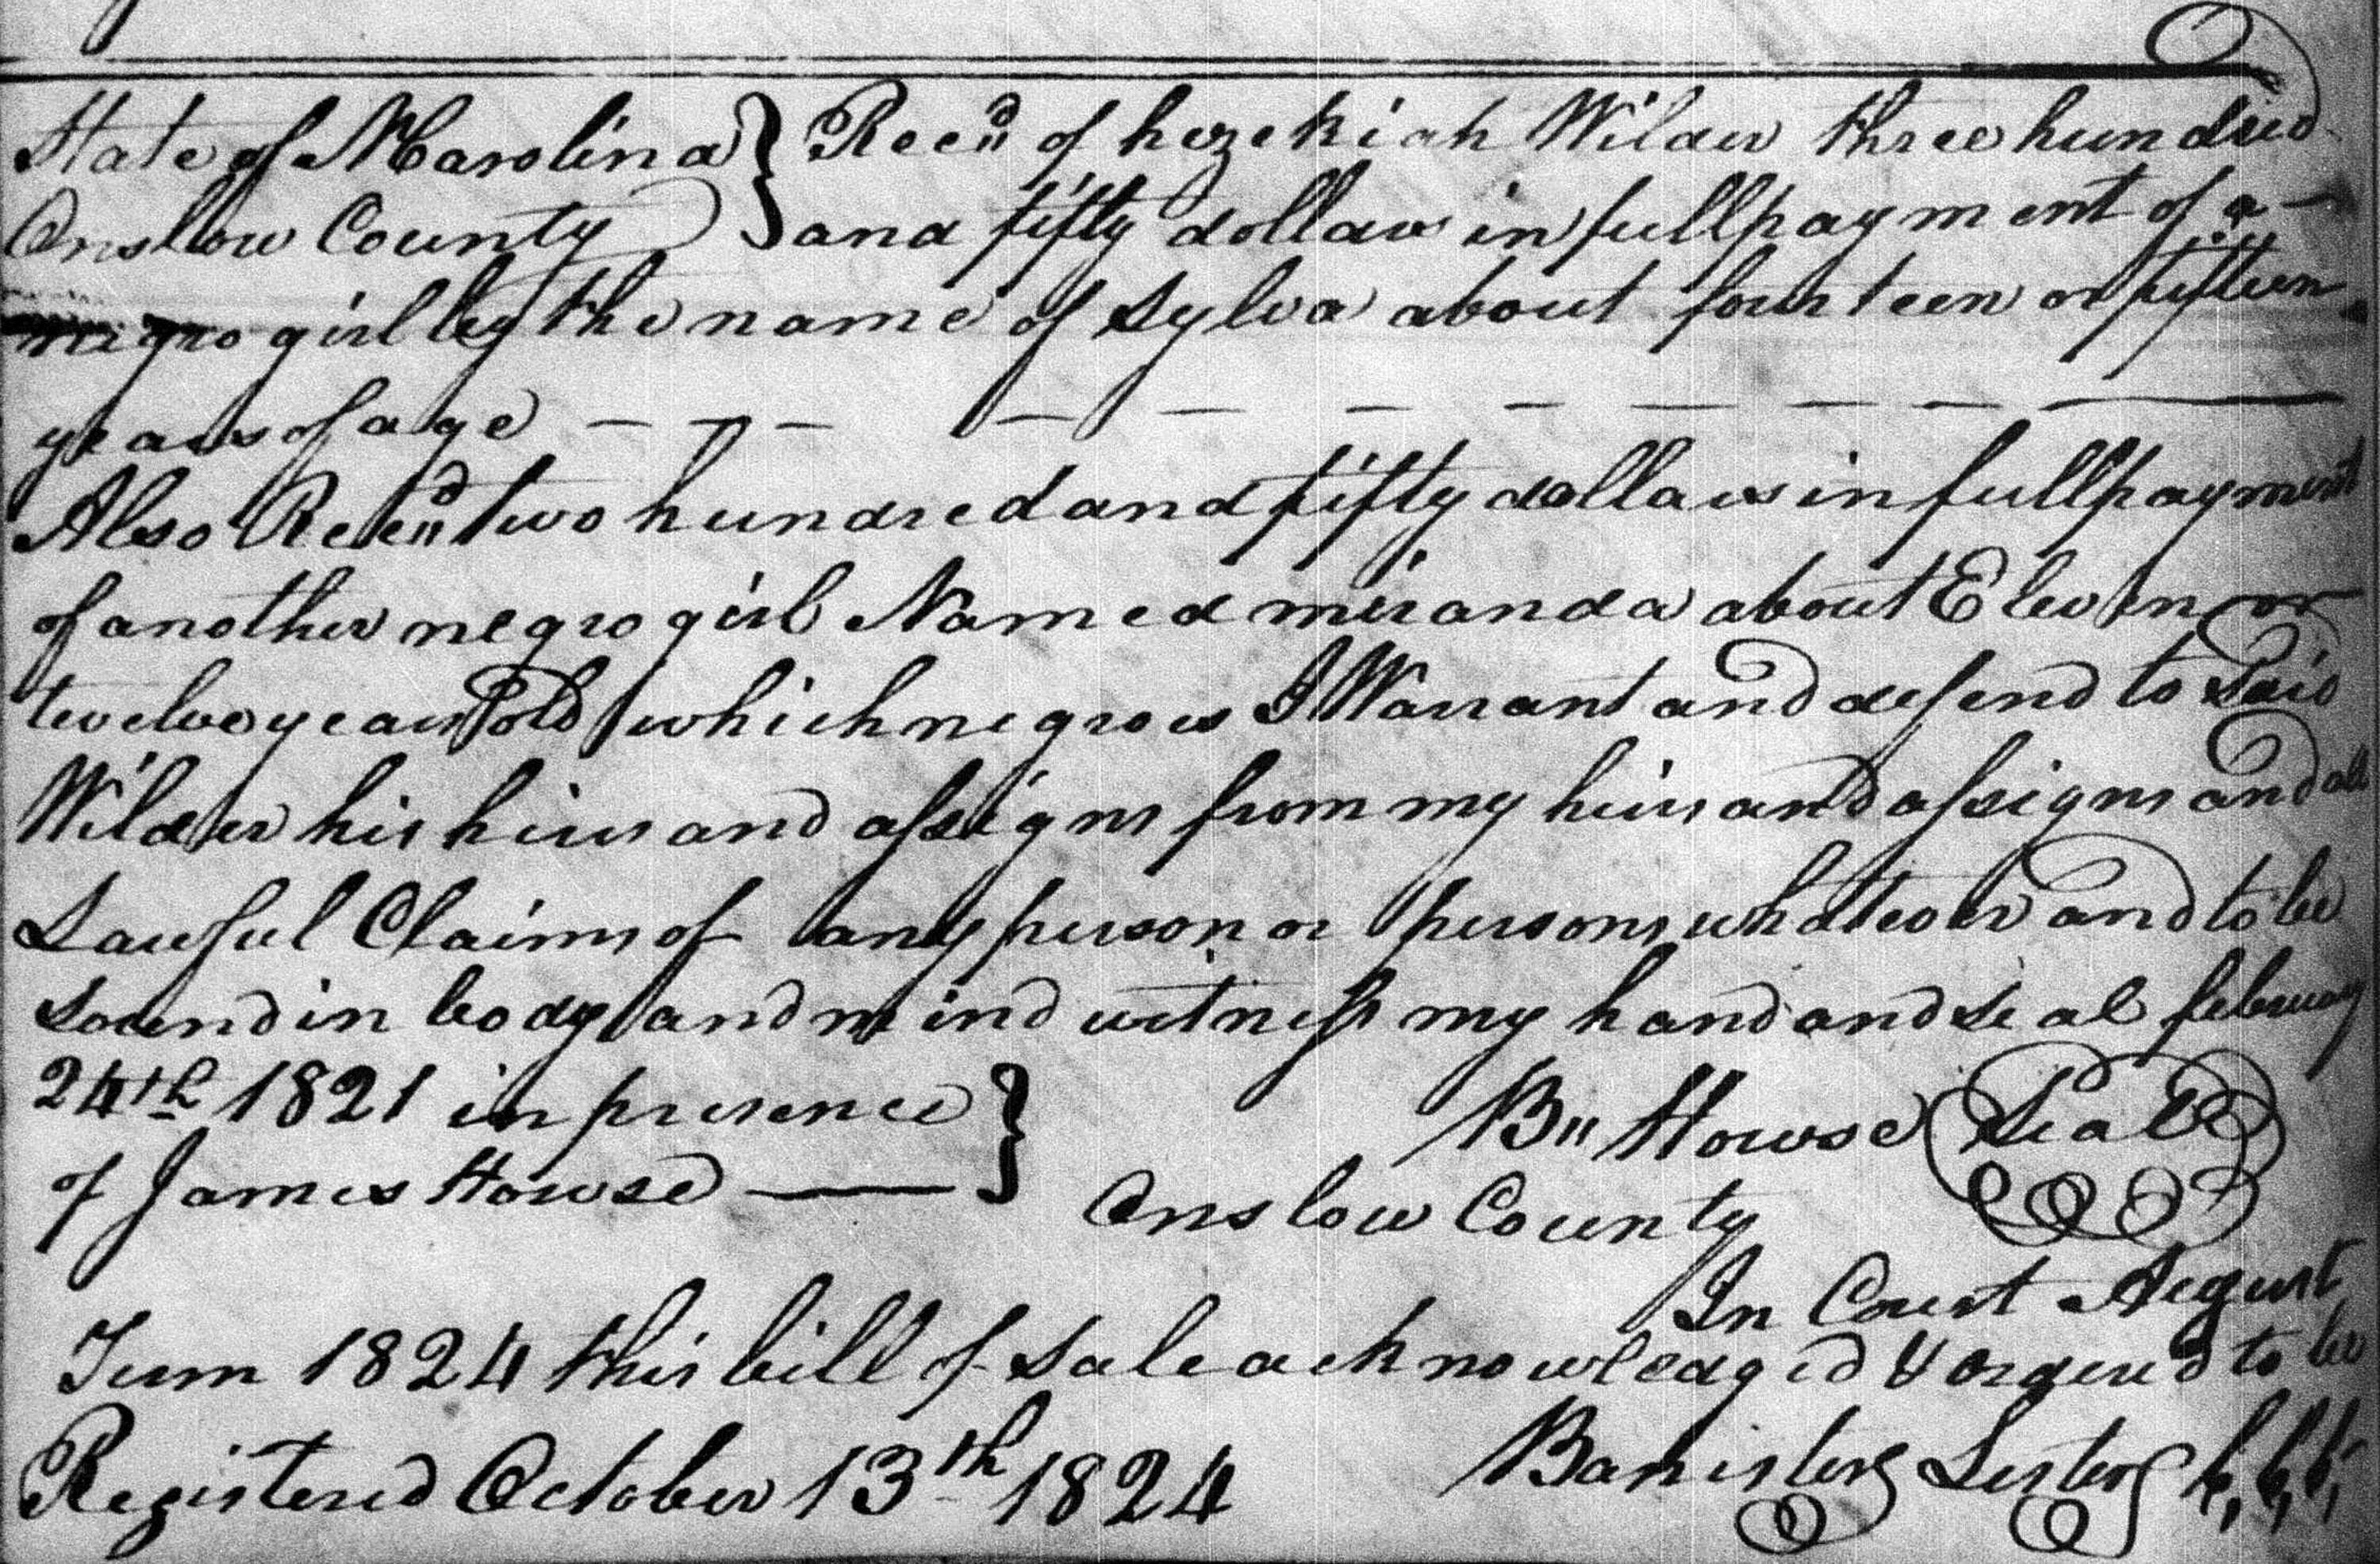 State of N Carolina } Recd of hezekiah Wilder three hundred
Onslow County } and fifty dollars in full payment of a
negro girl by the name of Sylva about fourteen or fifteen
years of age
Also Recd two hundred and fifty dollars in full payment
of another negro girl Named miranda about Eleven or
twelve years old which negroes I Warrant and defend to Said
Wilder his heirs and assigns from my heirs and assigns and all
Lawful Claims of any person or persons whatever and to be
sound in body and mind witness my hand and seal february
24th 1821 in presence }
of James Howse }
B" Howse Seal
Onslow County
In Court August
Term 1824 this bill of sale acknowledged & ordered to be
Registered October 13th 1824
Banister Lester